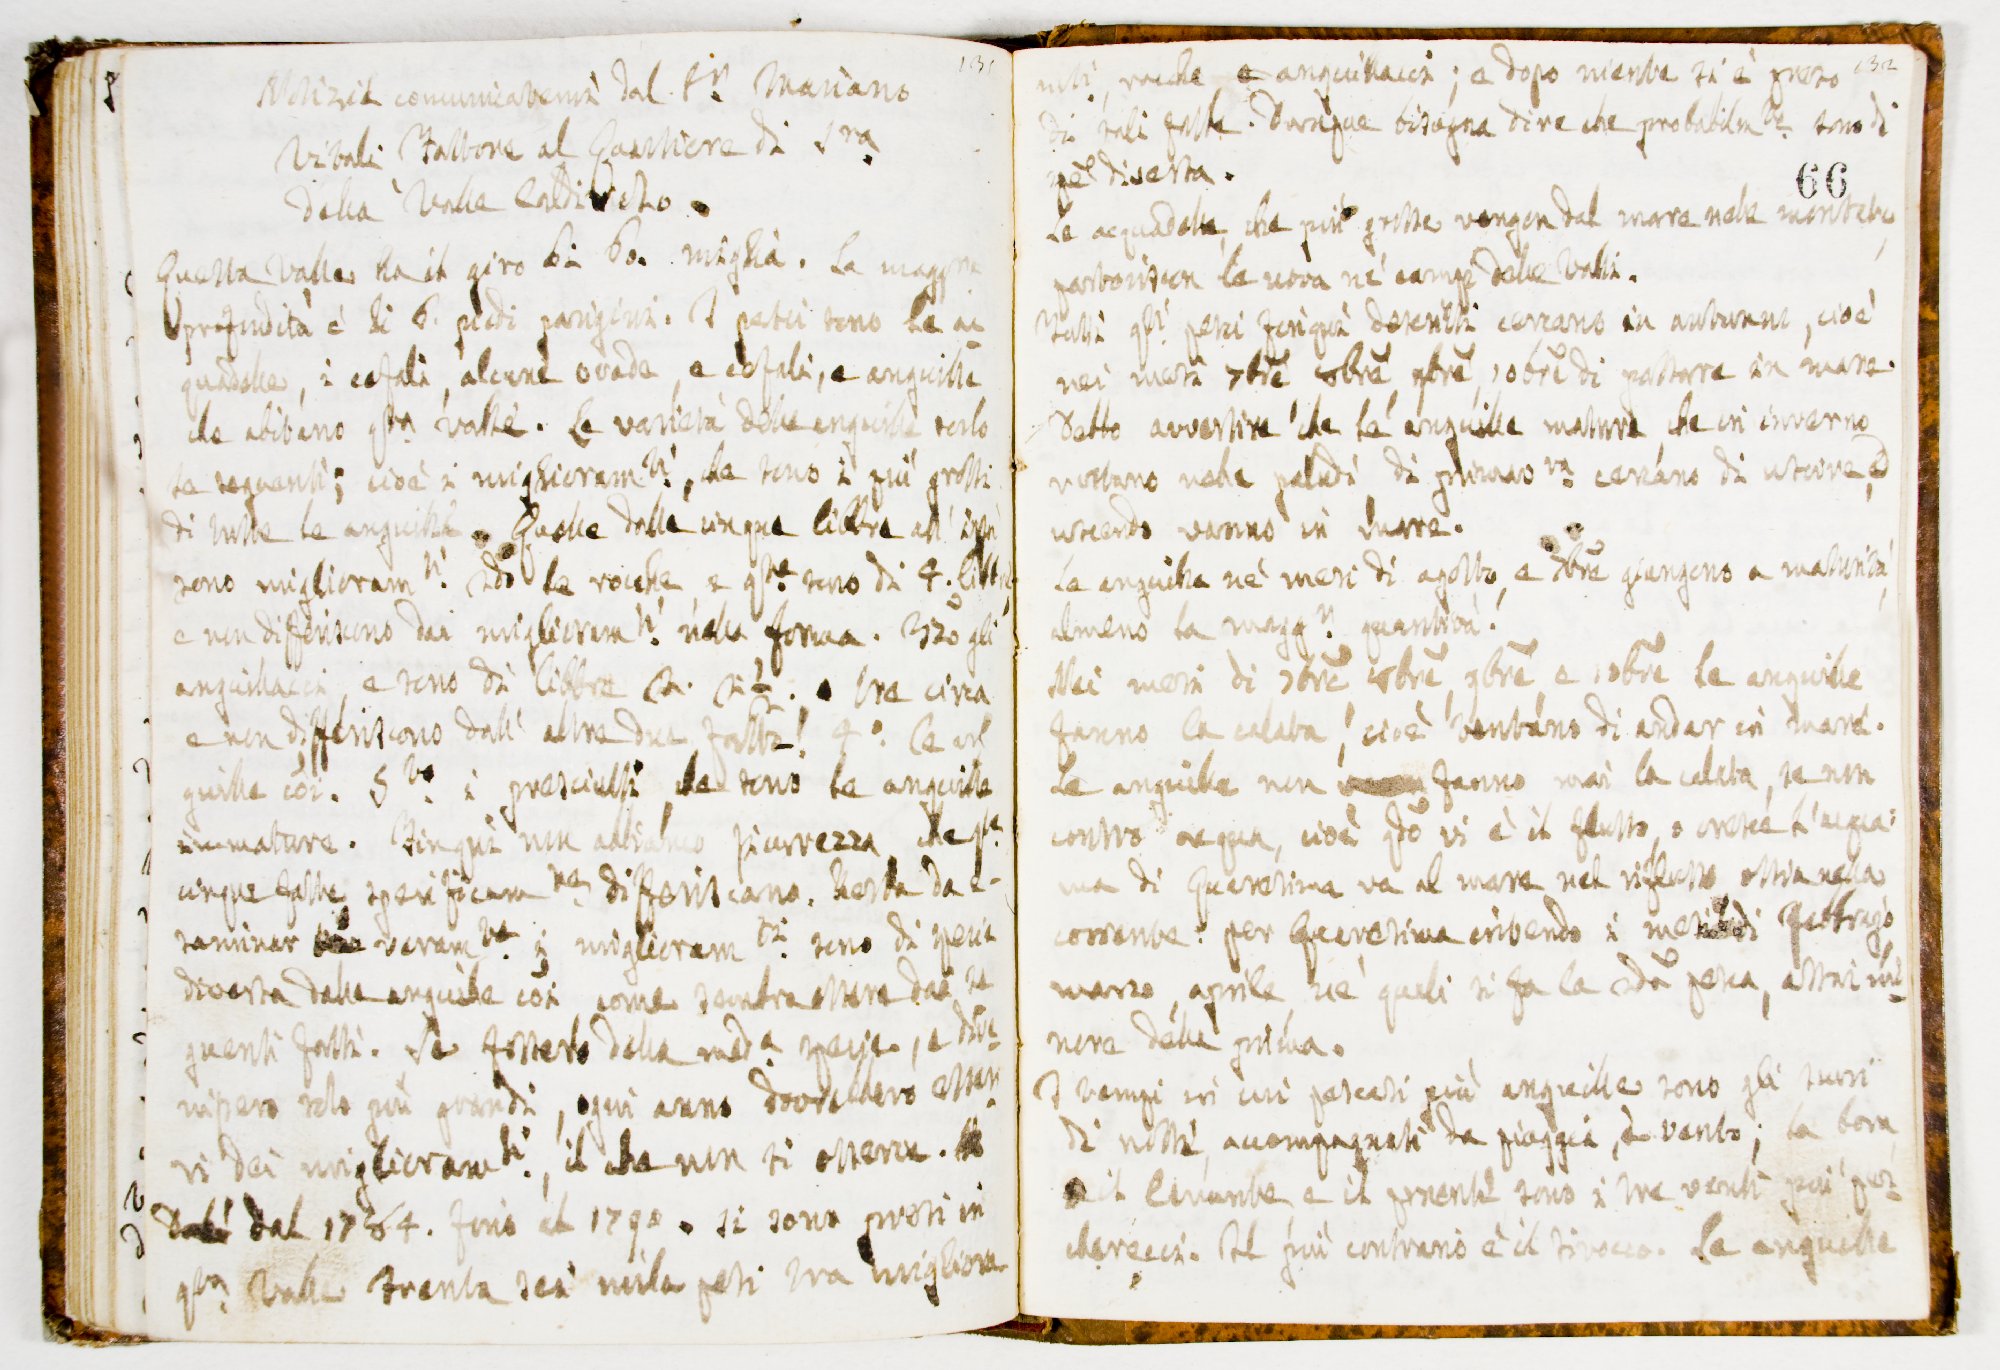 131
Notizie comunicatemi dal Sig.r Mariano
Vitali Fattore al Quartiere di S.ra
della Valle Caldirolo.
Questa Valle ha il giro di 60. miglia. La magg.re
profondità è di 6. piedi parigini. I pesci sono le ac
quadelle, i cefali, alcune orade, e cefali, e anguille
che abitano q.ta valle. Le varietà delle anguille sono
le seguenti; cioè i miglioram.ti, che sono i più grossi
di tutte le anguille. Quelle dalle cinque libbre
sono miglioram.ti. 2do le rocche, e q.te sono di 4. libbre,
e non differiscono dai miglioram.ti nella forma. 3zo gli
anguillacci, e sono di libbre tre circa
e non differiscono dall' altre due fatte. 4.o le an
guille così. 5.to i presciutti, che sono le anguille
immature. Finqui non abbiamo sicurezza, che q.te
cinque fatte specificam.te differiscano. Resta da e-
saminar se veram.te i miglioram.ti sono di specie
diversa dalle anguille così, come sembra essere dai se
guenti fatti. Se fossero della med.a specie, e dive
nissero solo più grandi, ogni anno dovrebbero esser
vi dei miglioram.ti, il che non si osserva.
dal 1764. fino al 1790. si sono presi in
q.ta Valle trenta sei mila pesi tra migliora-
132
nti, rocche e anguillacci; e dopo niente si è preso
di tali fatte. Dunque bisogna dire che probabilm.te sono di
spe diversa.
66
Le acquadelle, che più grosse vengon dal mare nelle montate,
partoriscon le uova ne' campi delle Valli.
Tutti q.ti pesci finqui descritti cercano in autunno, cioè
nei mesi 7bre 8bre 9bre, 10bre di passare in mare.
Debbo avvertire che le anguille mature, che in inverno
restano nelle paludi, di primav.ra cercano di uscire, ed
uscendo vanno in mare.
Le anguille ne' mesi di agosto, e 7bre giungono a maturità,
almeno la magg.r quantità.
Nei mesi di 7bre 8bre, 9bre, e 10bre le anguille
fanno la calata, cioè tentano di andar in mare.
Le anguille non fanno mai la calata, se non
contro acqua, cioè qdo vi è il flusso, o cresce l'acqua:
ma di Quaresima va al mare nel riflusso, ossia nella
corrente: per Quaresima intendo i mesi di Febbrajo,
marzo, aprile, ne' quali si fa la 2da pesca, assai mi-
nore della prima.
I tempi in cui pescasi più anguille sono gli scuri
di notti, accompagnati da pioggia, da vento; la bora
il Levante e il ponente sono i tre venti più pes-
cherecci. Il più contrario è il sirocco. Le anguille